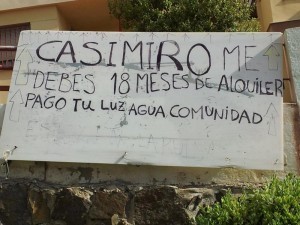 CASIMIRO ME
DEBES 18 MESES DE ALQUILER
PAGO TU LUZ AGUA COMUNIDAD